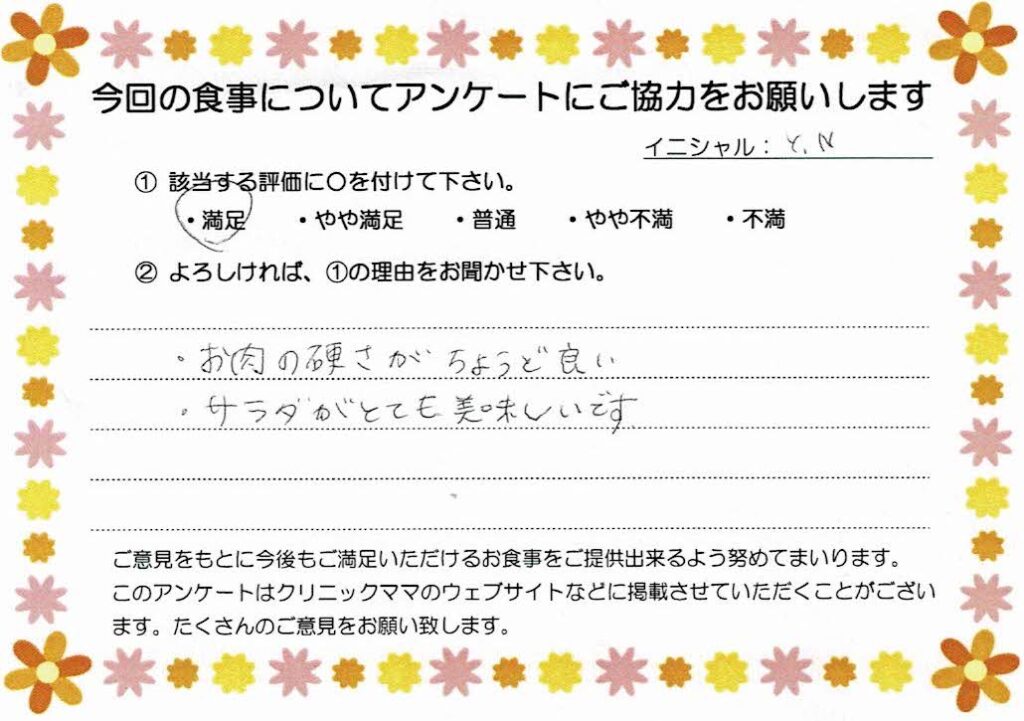 今回の食事についてアンケートにご協力をお願いします
イニシャル： Y.N
① 該当する評価に〇を付けて下さい。
・満足 ・やや満足 ・普通 ・やや不満 ・不満
② よろしければ、①の理由をお聞かせ下さい。
・お肉の硬さがちょうど良い
・サラダがとても美味しいです
ご意見をもとに今後もご満足いただけるお食事をご提供出来るよう努めてまいります。
このアンケートはクリニックママのウェブサイトなどに掲載させていただくことがござい
ます。たくさんのご意見をお願い致します。